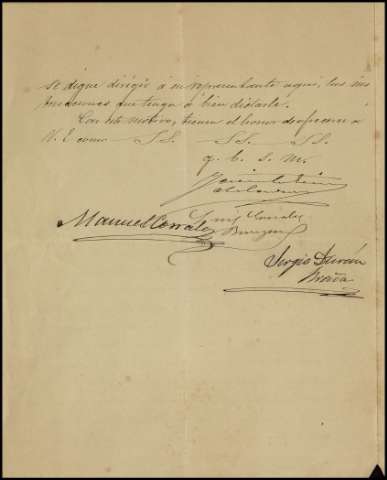 se digne dirigir á su representante aquí, las ins
trucciones que tenga á bien dictarle.
Con este motivo, tienen el honor de ofrecerse á
V. E. como SS. SS. SS.
q. b. s. m.
Manuel Corrales
Luis Corrales
Sergio Durán